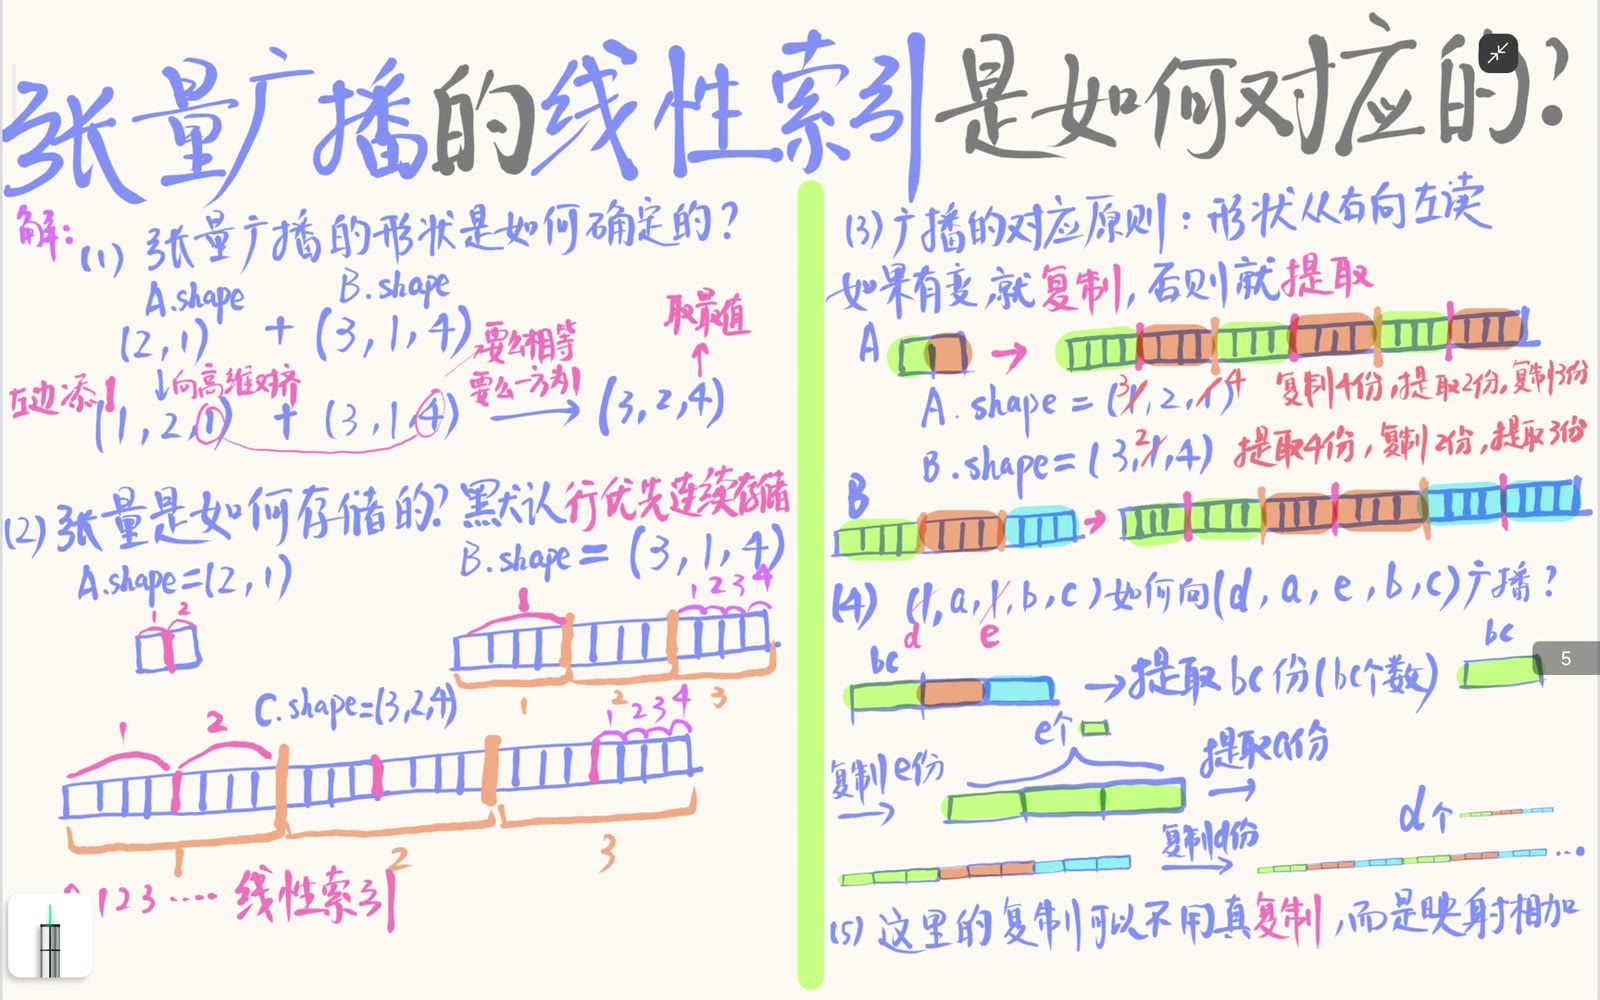 张量广播的线性索引是如何对应的?
解:
(1) 张量广播的形状是如何确定的?
A.shape B.shape
(2,1) + (3,1,4)
要么相等
要么一方为1
取最值
左边添1
向高维对齐
(1,2,1) + (3,1,4) → (3,2,4)
(2) 张量是如何存储的? 默认行优先连续存储
A.shape=(2,1) B.shape=(3,1,4)
1 2
1
1 2 3 4
1 2 3
C.shape=(3,2,4)
1 2
1 2 3 4
1 2 3
0 1 2 3 ···· 线性索引
(3) 广播的对应原则:形状从右向左读
如果有变,就复制,否则就提取
A →
A.shape = (3 1,2,1)4 复制4份,提取2份,复制3份
B.shape=(3,2 1,4) 提取4份,复制2份,提取3份
B →
(4) (1,a,1,b,c)如何向(d,a,e,b,c)广播?
d e
bc → 提取bc份(bc个数) bc
复制e份 → e个 提取a份 →
复制d份 → d个 ···
(5) 这里的复制可以不用真复制,而是映射相加
5